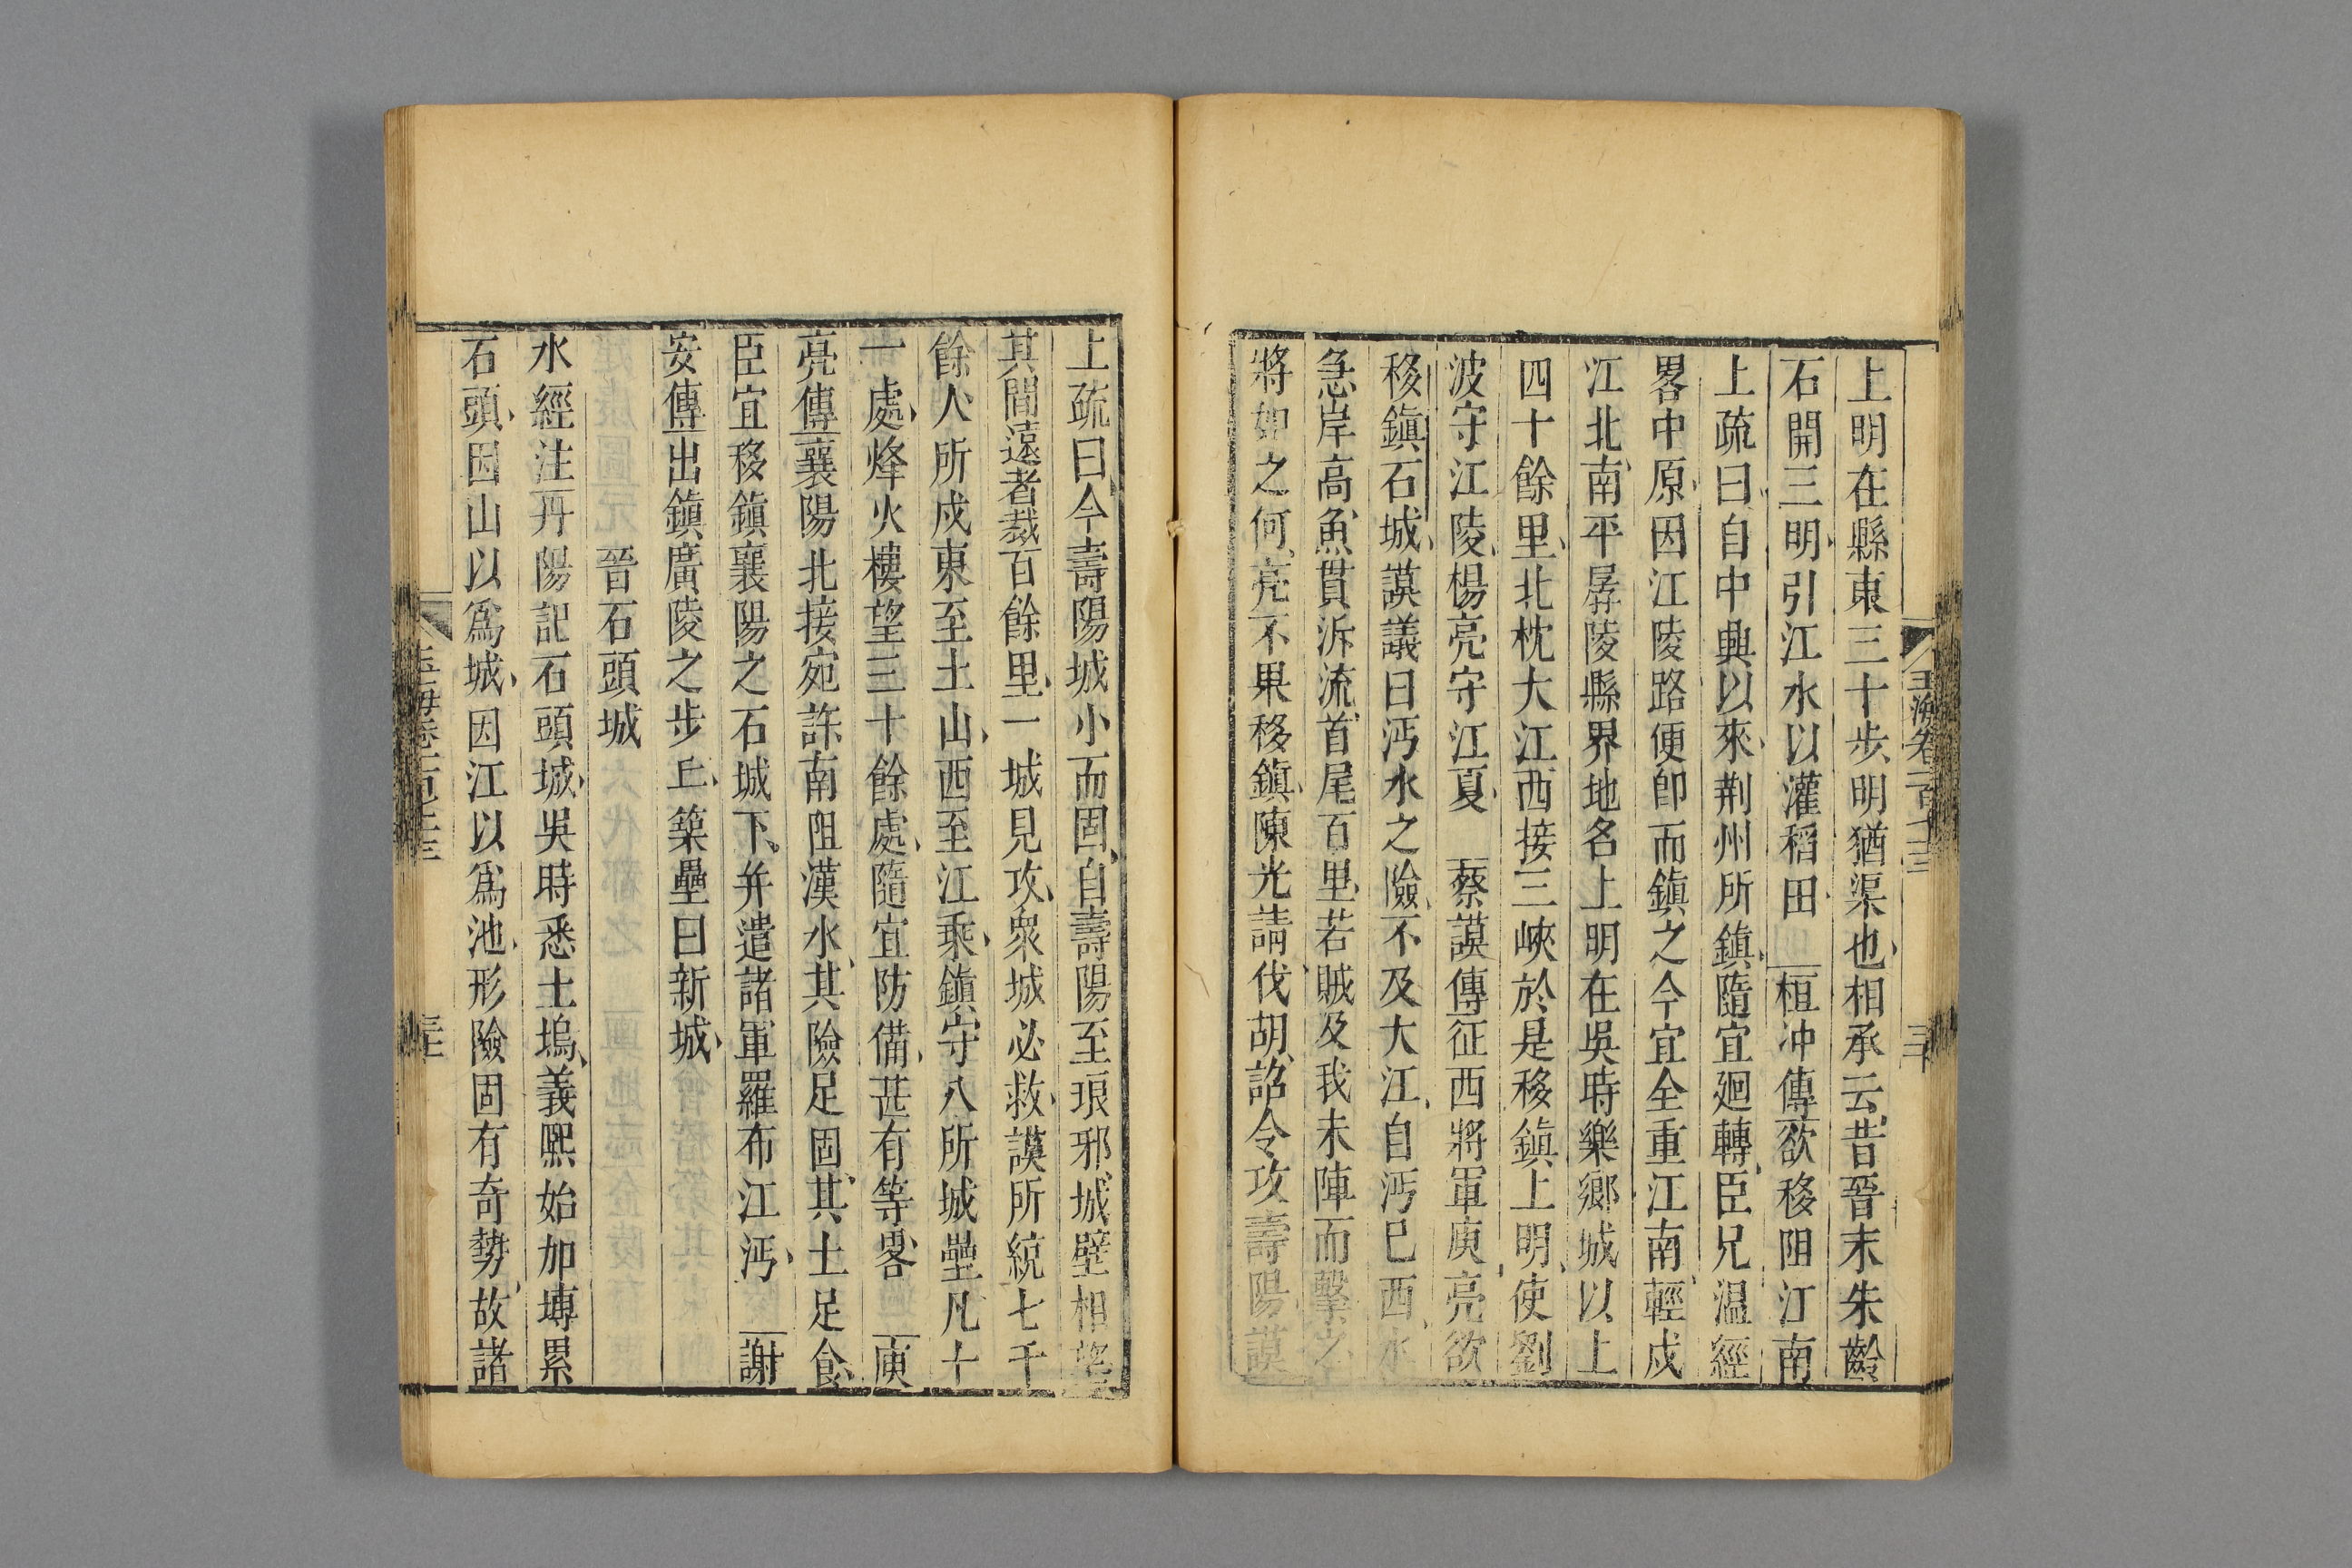 上明在縣東三十步、明猶渠也、相承云、昔晉末朱齡
石開三明、引江水以灌稻田 桓沖傳欲移阻江南
上疏曰、自中興以來、荆州所鎮、隨宜廻轉、臣兄溫經
畧中原、因江陵路便卽而鎮之今宜全重江南輕戍
江北、南平孱陵縣界地名上明在吳時樂鄉城以上
四十餘里、北枕大江西接三峽於是移鎮上明、使劉
波守江陵、楊亮守江夏、 蔡謨傳征西將軍庾亮欲
移鎮石城、謨議曰沔水之險、不及大江、自沔已西、水
急岸高、魚貫泝流、首尾百里、若賊及我未陣而擊之
將如之何、亮不果移鎮、陳光請伐胡、詔令攻壽陽、謨
上疏曰、今壽陽城小而固、自壽陽至琅邪、城壁相望
其間遠者裁百餘里、一城見攻、衆城必救、謨所統七千
餘人、所戍東至土山、西至江乘、鎮守八所城壘凡十
一處、烽火樓望三十餘處、隨宜防備、甚有等畧 庾
亮傳襄陽北接宛許南阻漢水、其險足固、其土足食、
臣宜移鎮襄陽之石城下、并遣諸軍羅布江沔、 謝
安傳出鎮廣陵之步丘、築壘曰新城、
晉石頭城
水經注丹陽記石頭城、吳時悉土塢、義熙始加塼累
石頭、因山以爲城、因江以爲池、形險固有奇勢、故諸